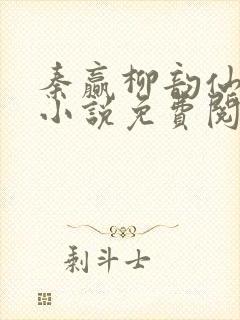 秦赢柳韵仙
小说免费阅
剩斗士